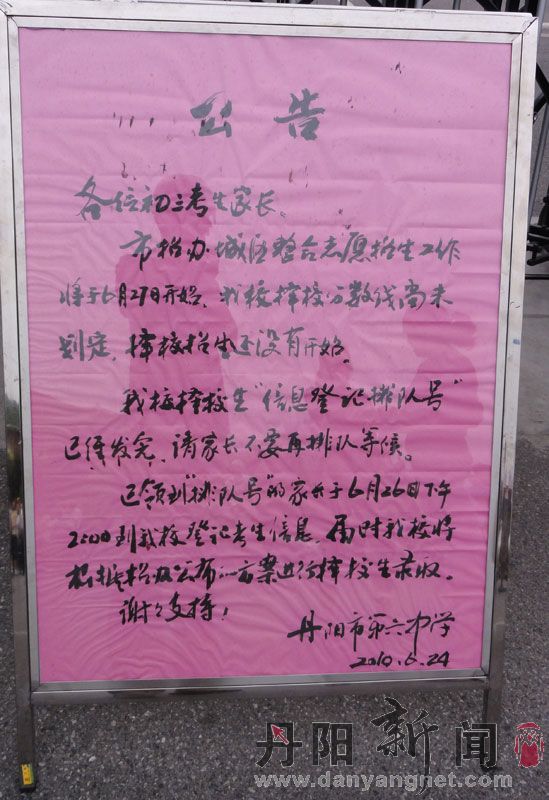 公告
各位初三考生家长:
市招办城区整合志愿招生工作
将于6月27日开始,我校择校分数线尚未
划定,择校招生还没有开始。
我校择校生“信息登记排队号”
已经发完,请家长不要再排队等候。
已领到“排队号”的家长于6月26日下午
2:00到我校登记考生信息,届时我校将
根据招办公布的方案进行择校生录取。
谢谢支持!
丹阳市第六中学
2010.6.24
丹阳新闻
www.danyangnet.com